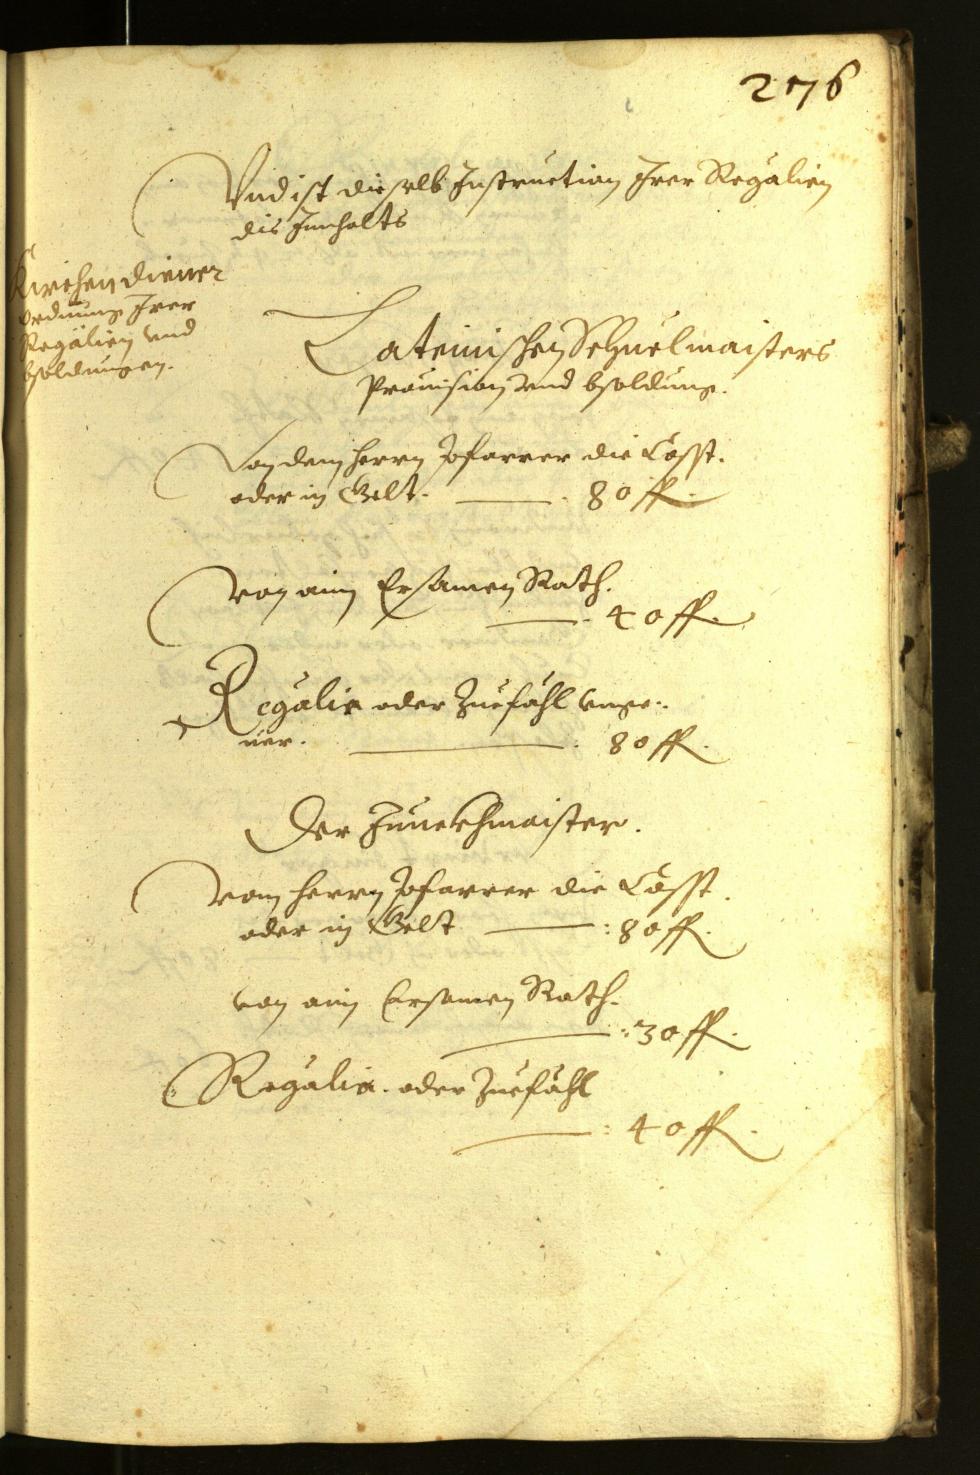 276
Vnd ist dieselb Instruction Jrer Regalien
dis Jnnhalts
Kirchendiener
ordnung Jrer
Regalien vnd
bsoldungen.
Lateinischen Schuelmaisters
Prouision vnd bsoldung.
Von dem herrn Pfarrer die Cosst.
oder in Gelt. 80 ff.
Von ain Ersamen Rath.
40 ff.
Regalia oder Zuefähl vnge:
uer. 80 ff.
Der Junckhmaister.
Vom herrn Pfarrer die Cosst.
oder in Gelt : 80 ff.
von ain Ersamen Rath.
: 30 ff.
Regalia. oder Zuefähl
: 40 ff.